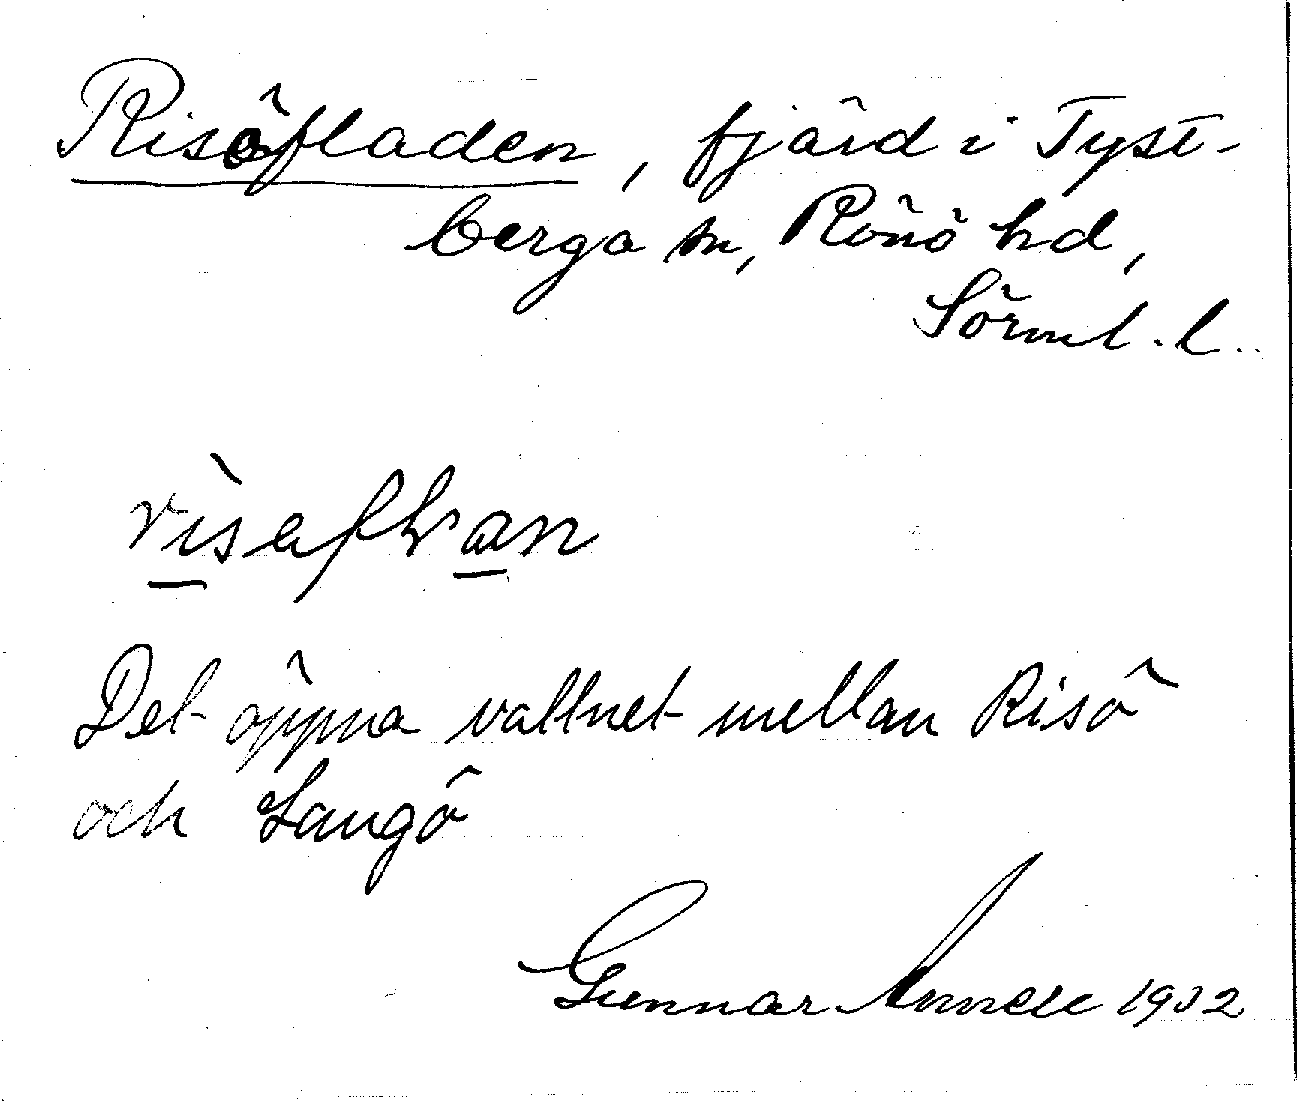 Risöfladen, fjärd i Tyst-
berga sn, Rönö hd,
Sörml. l.
Det öppna vattnet mellan Risö
och Långö
Gunnar 1932